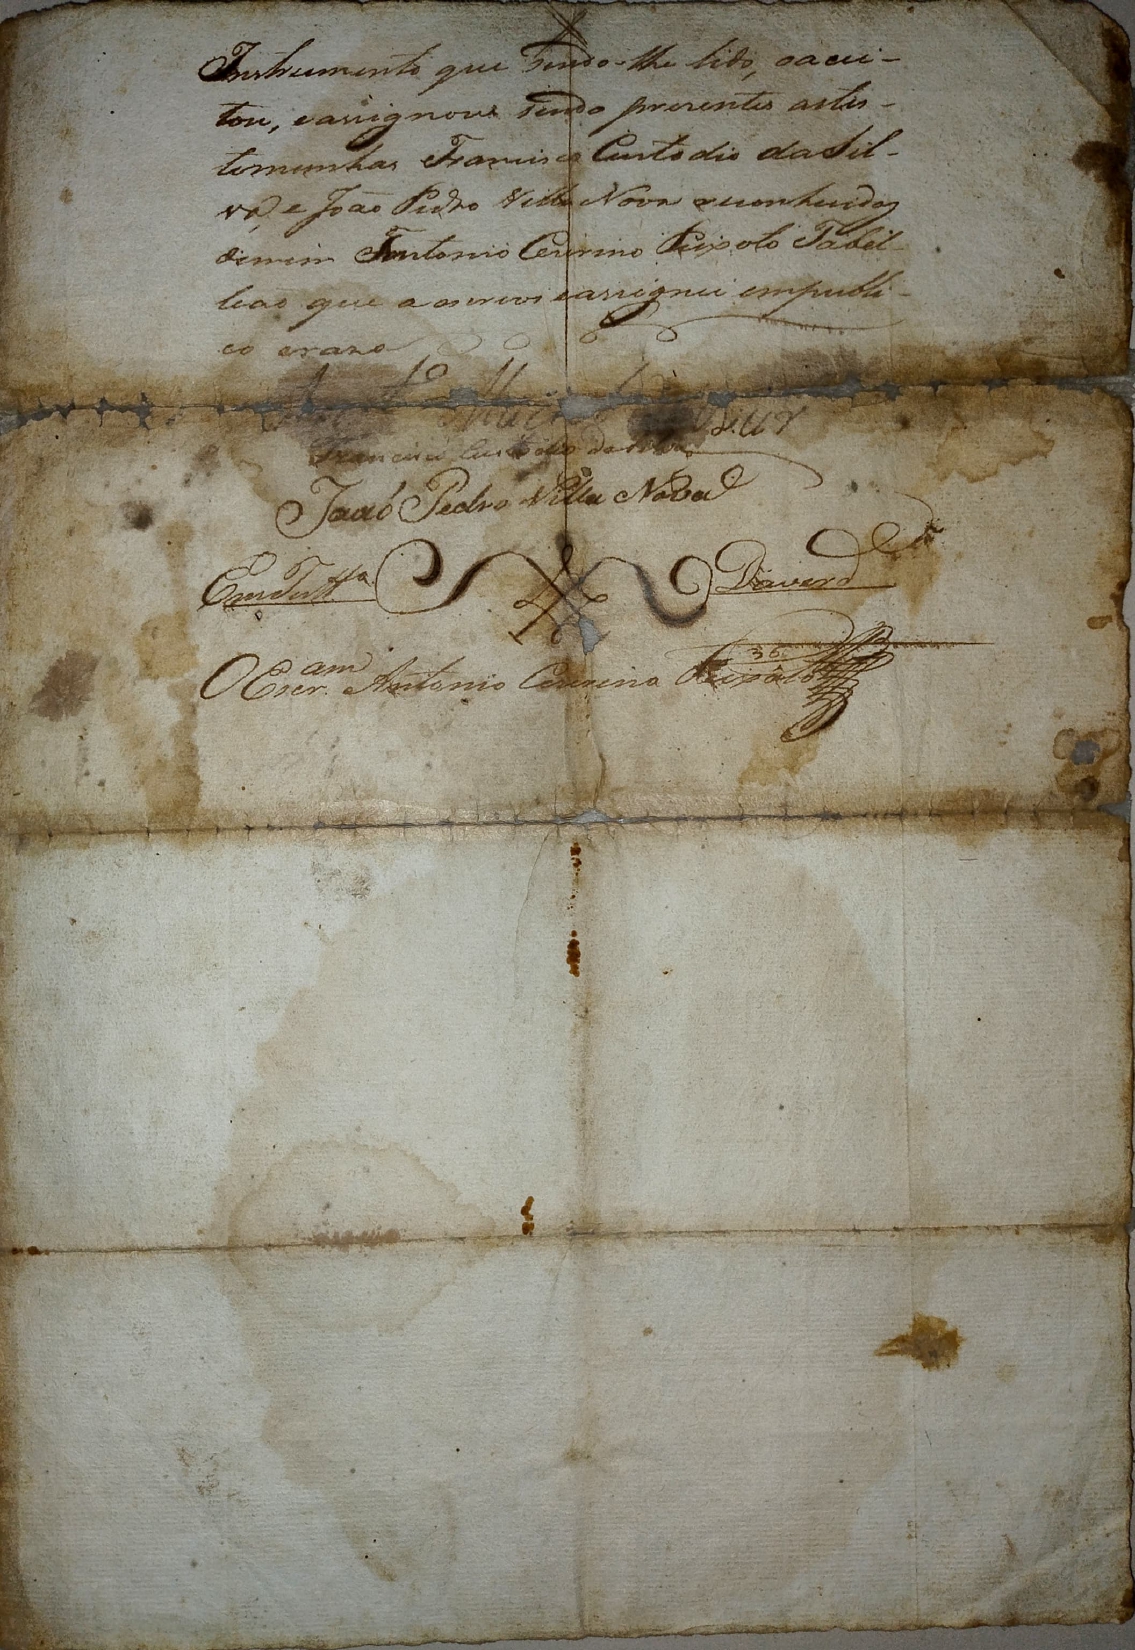 Instrumento que sendo-lhe lido, oacei-
tou, eassignou sendo presentes astes-
temunhas Francisco Custodio daSil-
va, e João Pedro Villa Nova reconhecidos
demim Antonio Cesirino Peixoto Tabel-
leao que a escrevi eassignei empubli-
co eraso
Francisco Custodio da Silva
Joaó Pedro Villa Nova
Em Test.º Daverd.e
O Escr.am Antonio Cesirino Peixôto